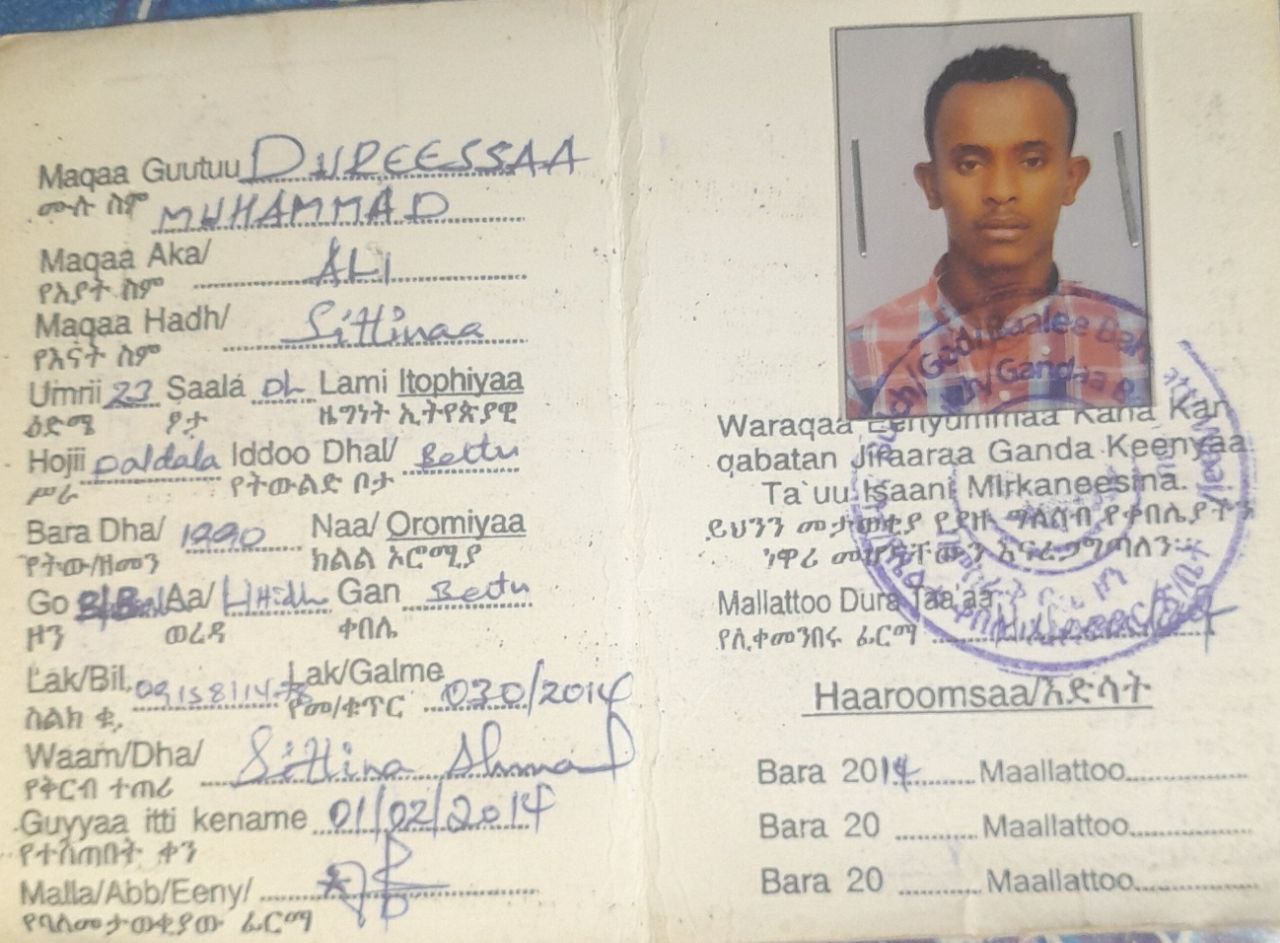 Maqaa Guutuu DUREESSAA
ሙሉ ስም MUHAMMAD
Maqaa Aka/ ALI
የአያት ስም
Maqaa Hadh/ Sittinaa
የእናት ስም
Umrii 23 Saala DhL Lami Itophiyaa
ዕድሜ ፆታ ዜግነት ኢትዮጵያዊ
Hojii Daldala Iddoo Dhal/ Bettu
ሥራ የትውልድ ቦታ
Bara Dha/ 1990 Naa/ Oromiyaa
የትው/ዘመን ክልል ኦሮሚያ
Go Aa/ Gan Bettu
ዞን ወረዳ ቀበሌ
Lak/Bil. Lak/Galme 030/2014
ስልክ ቁ. የመ/ቁጥር
Waam/Dha/ Sittina Ahmad
የቅርብ ተጠሪ
Guyyaa itti kename 01/02/2014
የተሰጠበት ቀን
Malla/Abb/Eeny/
የባለመታወቂያው ፊርማ
Waraqaa Eenyummaa Kana Kan
qabatan Jiraaraa Ganda Keenyaa
Ta`uu Isaani Mirkaneesina.
ይህንን መታወቂያ የያዙ ግለሰብ የቀበሌያችን
ነዋሪ መሆናቸውን እናረጋግጣለን
Mallattoo Dura Taa'aa
የሊቀመንበሩ ፊርማ
Haaroomsaa/እድሳት
Bara 2014 Maallattoo
Bara 20 Maallattoo
Bara 20 Maallattoo